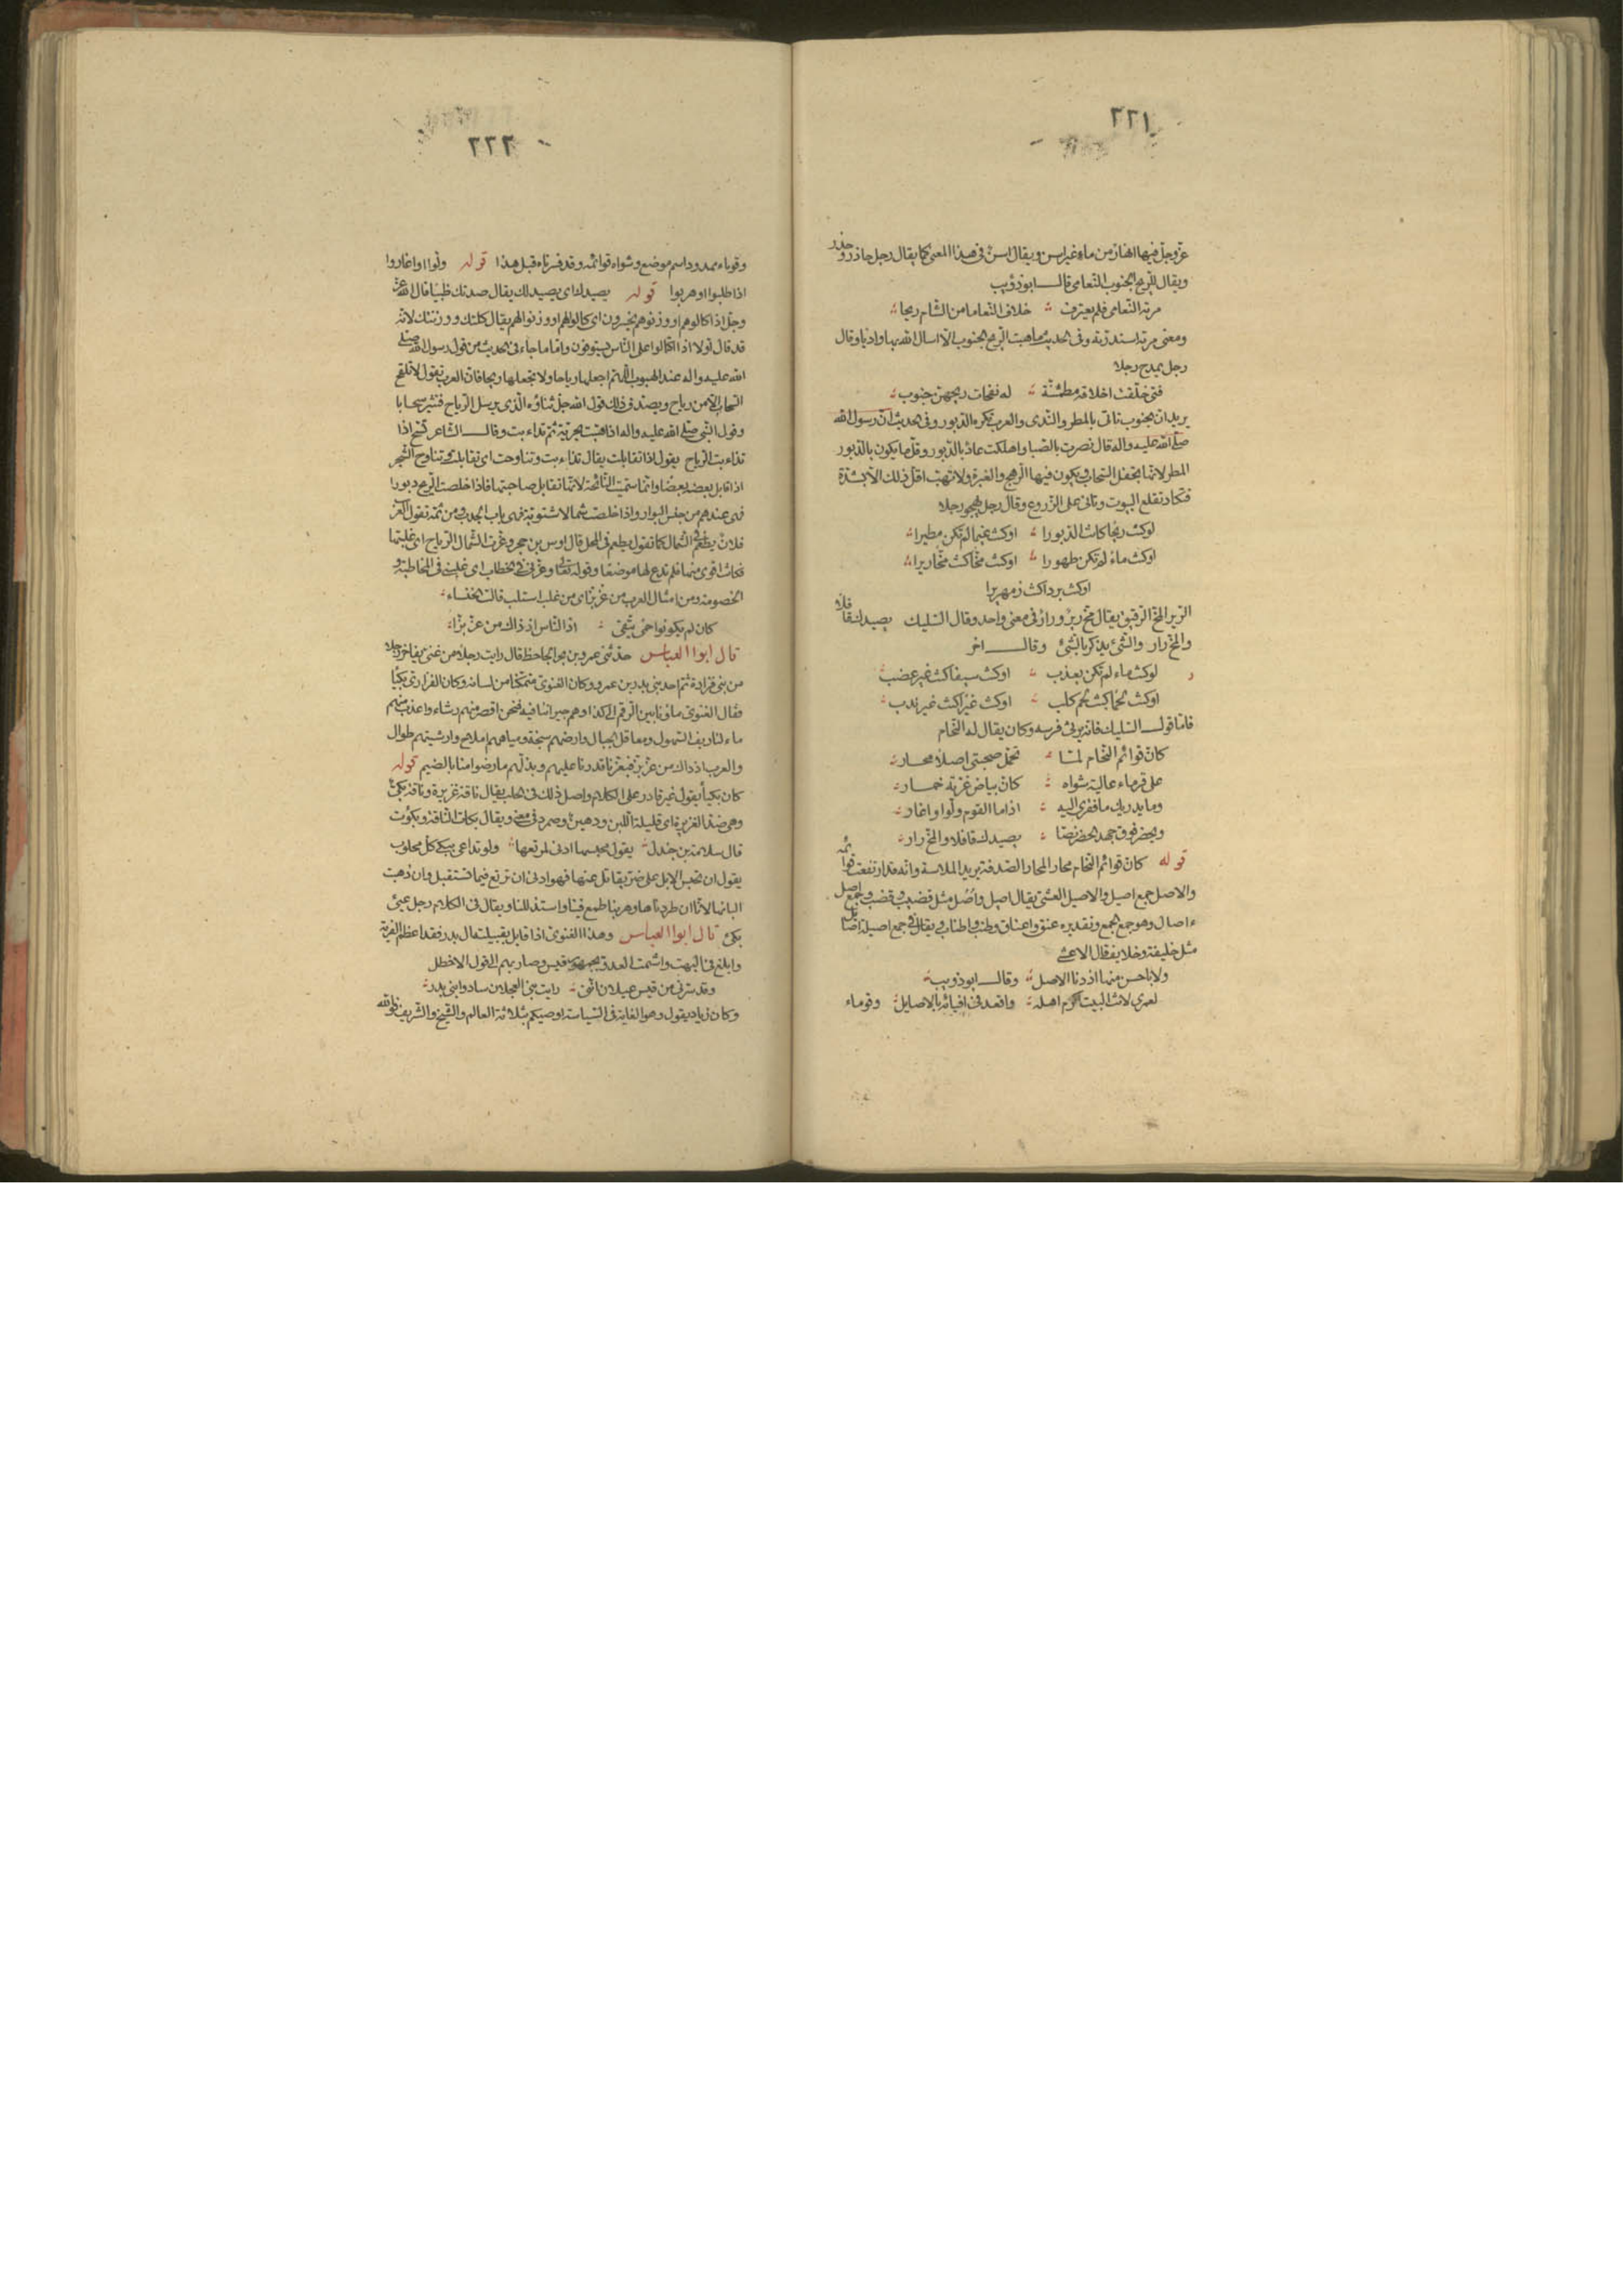 ٢٢١
عزّ وجلّ فيها انهار من ماء غير اسن ويقال اسن فى هذا المعنى كما يقال رجل حاذر وحذر
ويقال للريح الجنوب النعامى قال ابو ذؤيب
مرته النعامى فلم يعترف خلاف النعاما من الشام ريحا
ومعنى مرته استدرّته وفى الحديث ما هبّت الريح الجنوب الّا اسال الله بها واديا وقال
رجل يمدح رجلا
فتى خلقت اخلاقه مطمئنّة له نفحات ريحهنّ جنوب
يريد ان الجنوب تاتى بالمطر والندى والعرب تكره الدّبور وفى الحديث انّ رسول الله
صلّى الله عليه واله قال نصرت بالصبا واهلكت عاد بالدّبور وقلّ ما يكون بالدّبور
المطر لانّها تجفل السّحاب ويكون فيها الرّهج والغبرة ولا تهبّ اقلّ ذلك الّا بشدّة
فتكاد تقلع البيوت وتاتى على الزّروع وقال رجل يهجو رجلا
لو كنت ريحا كانت الدّبورا او كنت غيما لم تكن مطيرا
او كنت ماء لم تكن طهورا او كنت مخّا كنت مخّا ريرا
او كنت بردا كنت زمهريرا
الرير المخ الرقيق يقال مخ رير ورار فى معنى واحد وقال السّليك يصيدك قافلا
والمخ رار والشئ يذكر بالشئ وقال اخر
لو كنت ماء لم تكن بعذب او كنت سيفا كنت غير عضب
او كنت لحما كنت لحم كلب او كنت عيرا كنت غير ندب
فامّا قول السّليك فانّه يرثى فرسه وكان يقال له النّحام
كانّ قوائم النّحام لمّا تحمّل صحبتى اصلا محار
على قرماء عالية شواه كانّ بياض غرّته خمار
وما يدريك ما فقرى اليه اذا ما القوم ولّوا او اغاروا
ويحضر فوق جهد الحضر نصّا يصيدك قافلا والمخّ رار
قوله كانّ قوائم النحام محار المحار الصّدفة يريد الملاسة وانّه قد ارتفعت قوائمه
والاصل جمع اصيل والاصيل العشىّ يقال اصيل واصل مثل قضيب وقضب وجمع اصل
ءاصال وهو جمع الجمع وتقديره عنق واعناق وطنب واطناب ويقال فى جمع اصيلة اصائل
مثل خليفة وخلايف قال الاعشى
ولا باحسن منها اذ دنا الاصل وقال ابو ذويب
لعمرى لانت البيت اكرم اهله واقعد فى افيائه بالاصايل وقوماء
٢٢٢
وقوماء ممدود اسم موضع وشواه قوائمه وقد فسرناه قبل هذا قوله ولّوا او اغاروا
اذا طلبوا او هربوا قوله يصيدك اى يصيد لك يقال صدتك ظبيا قال الله عزّ
وجلّ اذا كالوهم او وزنوهم يخسرون اى كالوا لهم او وزنوا لهم يقال كلتك ووزنتك لانّه
قد قال اولا اذا اكتالوا على النّاس يستوفون وامّا ما جاء فى الحديث من قول رسول الله صلّى
الله عليه واله عند الهبوب اللّهم اجعلها رياحا ولا تجعلها ريحا فانّ العرب تقول لا تلقح
السّحاب الّا من رياح ويصدّق ذلك قول الله جلّ ثناؤه الّذى يرسل الرّياح فتثير سحابا
وقول النّبى صلّى الله عليه واله اذا هبّت بحريّة ثمّ تذاءبت وقال الشاعر تسح اذا
تذاءبت الرّياح يقول اذا تقابلت يقال تذاءبت وتناوحت اى تقابلت وتناوح الشّجر
اذا قابل بعضه بعضا وانّما سمّيت النّائحة لانّها تقابل صاحبتها فاذا خلصت الرّيح دبورا
فهى عندهم من جنس البوار واذا خلصت شمالا شتويّة فهى باب الجدب ومن ثمّه تقول العرب
فلان يطعم فى الشّمال كما تقول يطعم فى المحل قال اوس بن حجر وعزّت الشّمال الرّياح اى غلبتها
فكانت اقوى منها فلم تدع لها موضعا وقوله تعالى وعزّنى فى الخطاب اى غلبنى فى المخاطبة و
الخصومة ومن امثال العرب من عزّ بزّ اى من غلب استلب قالت الخنساء
كان لم يكونوا حمى يتّقى اذ النّاس اذ ذاك من عزّ بزّا
قال ابو العباس حدّثنى عمرو بن بحر الجاحظ قال رايت رجلا من غنى يفاخر رجلا
من بنى فزارة ثمّ احد بنى بدر بن عمرو وكان الغنوىّ متمكّنا من لسانه وكان الفزارى بكيّا
فقال الغنوى ماؤنا بين الرّقم الى كذا وهم جيراننا فيه فنحن اقصر منهم رشاء واعذب منهم
ماء لنا ريف السّهول ومعاقل الجبال وارضهم سبخة ومياههم املاح وارشيتهم طوال
والعرب اذ ذاك من عزّ بزّ فبعزّنا قدرنا عليهم وبذلّهم ما رضوا منّا بالضيم قوله
كان بكيّا يقول غير قادر على الكلام واصل ذلك فى الحلب يقال ناقة غزيرة وناقة بكئ
وهى ضدّ الغزيرة اى قليلة اللّبن ودهين وصمرد فى معنى ويقال بكات النّاقة وبكوت
قال سلامة بن جندل يقول محبسها ادنى لمرتعها ولو تداعى ببكئ كلّ محلوب
يقول ان تحبس الابل على ضرّ يقاتل عنها فهو ادنى ان ترتع فيما تستقبل وان ذهبت
البانها لانّا ان طردناها وهربنا طمع فينا واستذللنا ويقال فى الكلام رجل عيىّ
بكئ قال ابو العباس وهذا الغنوى اذا قابل بقبيلته ال بدر فقد اعظم الفرية
وابلغ فى البهت واشمت العدوّ بجمهور قيس وصار بهم الى قول الاخطل
وقد سرّنى من قيس عيلان انّنى رايت بنى العجلان سادوا بنى بدر
وكان زياد يقول وهو الغاية فى السّياسة اوصيكم بثلاثة العالم والشّيخ والشّريف فوالله